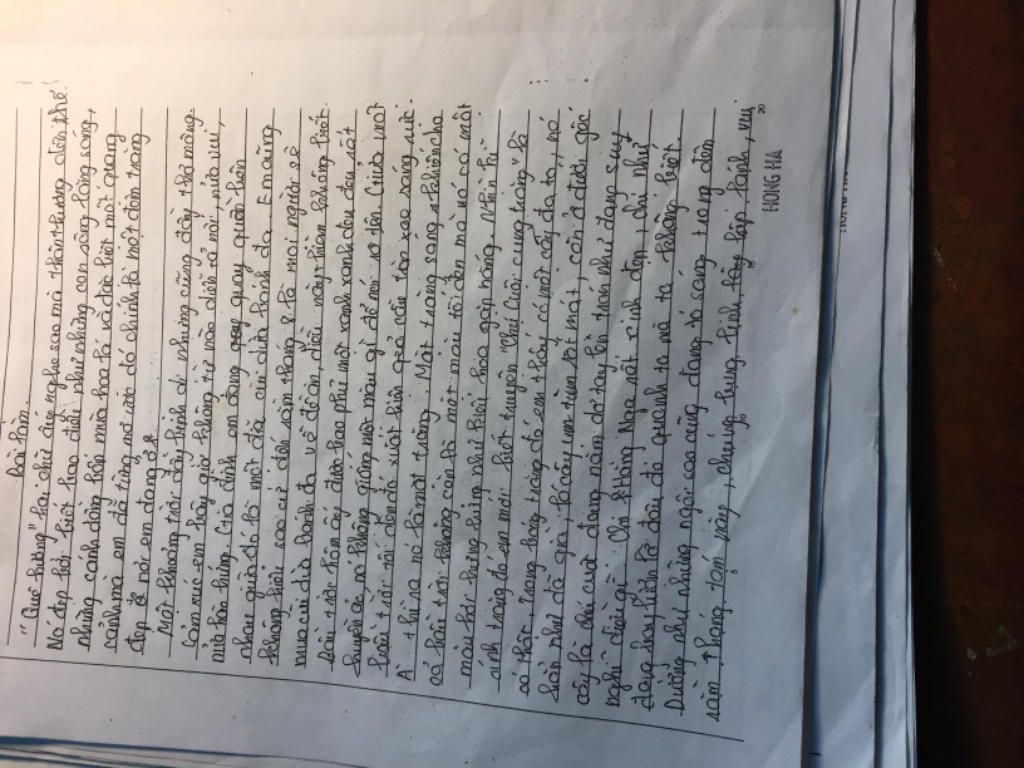 Bài làm
"Quê hương" hai chữ đơn nghe sao mà thân thương đến thế!
Nó đẹp hơi biết bao điều như những con sóng lăng sóng,
những cánh đồng lớn mùa hoa lá và đặc biệt một quang
cảnh mà em đã từng mơ ước đó chính là một đêm trăng
đẹp ở nơi em đang ở.
Một khoảng trời đầy bình dị nhưng cũng đầy thơ mộng.
Cảm xúc em bây giờ không từ nào diễn tả nổi, nửa vui,
nửa hào hứng. Gia đình em đang quay quần bên
nhau giữa đó là một dĩa củ dừa bánh đa. Em cũng
không biết sao cứ đến rằm tháng 8 là mọi người sẽ
mua củ dừa bánh đa về để ăn, điều này thậm không biết.
Bầu trời hôm ấy được bao phủ một xanh xanh đen đen rất
huyền ảo nó không giống một màu gì để mà gọi tên. Cuối một
buổi tối nọ dần đó xuất hiện quả cầu tròn xoe sáng rực.
À thì ra nó là mặt trăng. Mặt trăng sáng khiến cho
cả bầu trời không còn là một màu tối đen mà nó có một
màu hơi hửng hửng như khối hoa gạo nóng. Nhìn từ
ánh trăng đó em mới biết truyện "Chú Cuội cung trăng" là
có thật, trong bóng trăng đó em thấy có một cây đa to, nó
hiện như đã già, lá cây um tùm rất mát, còn ở dưới gốc
cây là chú cuội đang nằm dơ tay lên trán như đang suy
nghĩ điều gì. Chị Hằng Nga rất xinh đẹp, chị như
đang hay hiền là đâu đó quanh ta mà ta không biết
Dường như những ngôi sao cũng đang tỏ sáng trong đêm
rằm tháng tám này, chúng lung linh, lấp lánh, vui
20
HONG HA